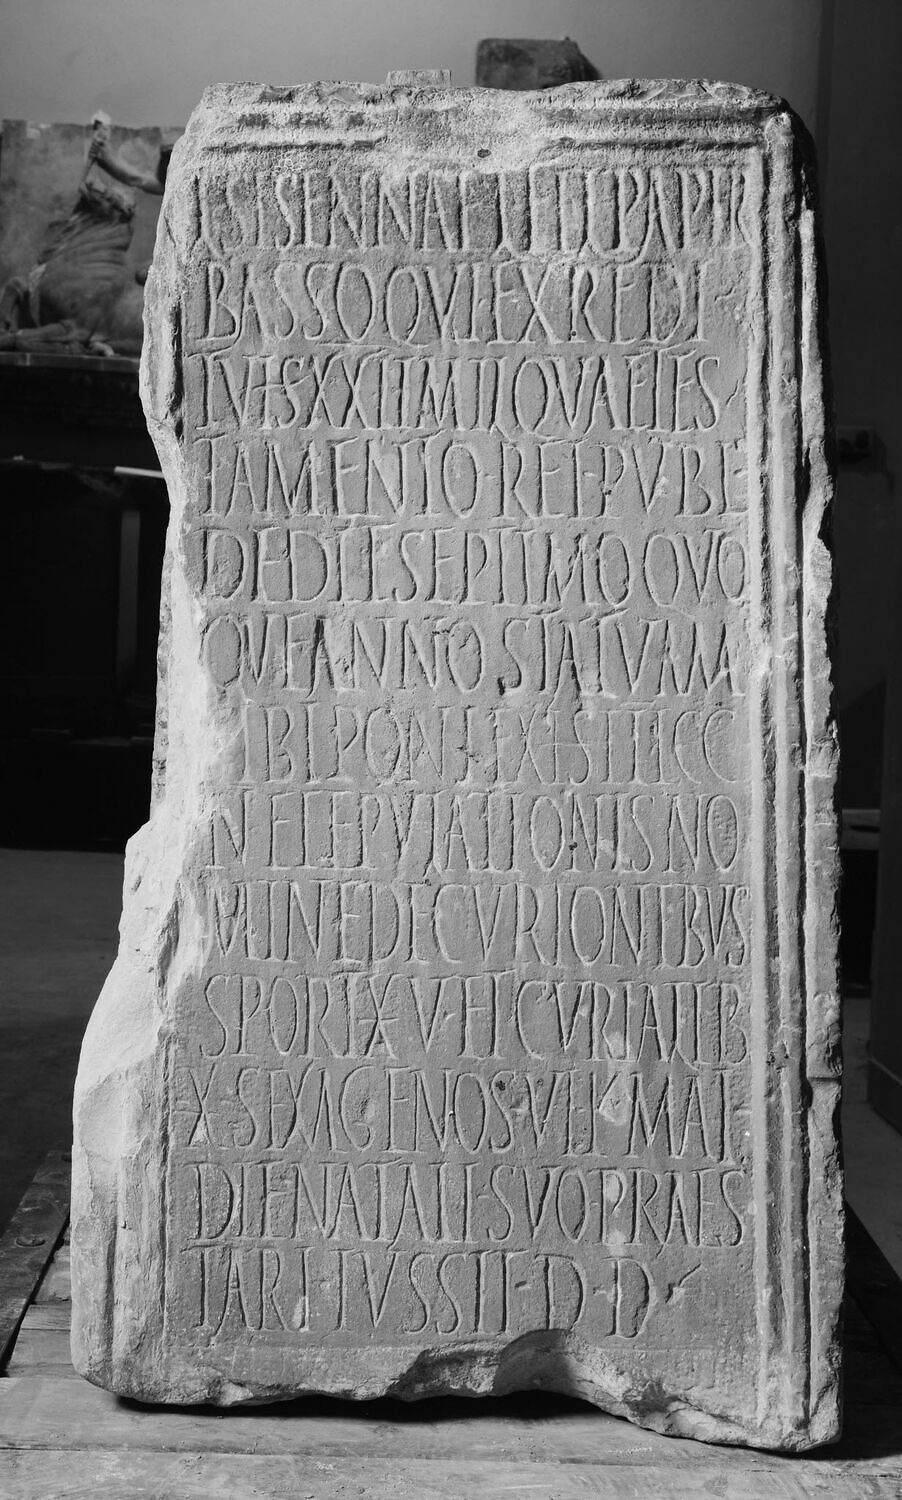 SISENNAE PAPIR
BASSO QVI EX REDI
TV HS XXII M QVAE TES
TAMENTO REI PVBL
DEDIT SEPTIMO QVO
QVE ANNO STATVAM
IBI PONI EX HS III CC
N ET EPVLATIONIS NO
MINE DECVRIONIBVS
SPOR X V ET CVRIALIB
X SEXAGENOS VII K MAI
DIE NATALI SVO PRAES
TARI IVSSIT D D